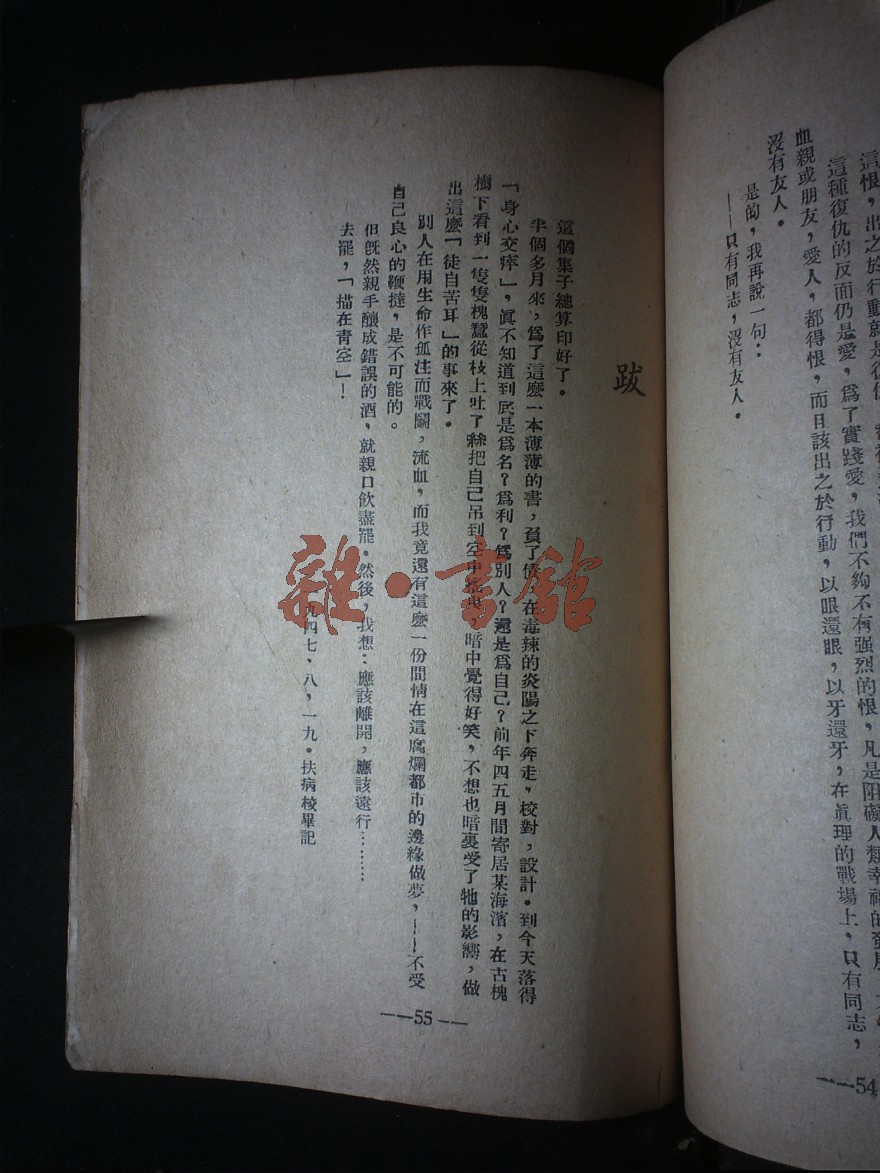 這恨，出之於行動就是復仇
這種復仇的反面仍是愛，爲了實踐愛，我們不夠不有强烈的恨，凡是阻礙人類幸福的發展
血親或朋友，愛人，都得恨，而且該出之於行動，以眼還眼，以牙還牙，在眞理的戰場上，只有同志，
沒有友人。
是的，我再說一句：
——只有同志，沒有友人。
——54
跋
這個集子總算印好了。
半個多月來，爲了這麼一本薄薄的書，負了債，在毒辣的炎陽之下奔走，校對，設計。到今天落得
「身心交瘁」，眞不知道到底是爲名？爲利？爲別人？還是爲自己？前年四五月間寄居某海濱，在古槐
樹下看到一隻隻槐蠶從枝上吐了絲把自己吊到空中，暗中覺得好笑，不想也暗裏受了牠的影響，做
出這麼「徒自苦耳」的事來了。
別人在用生命作孤注而戰鬭，流血，而我竟還有這麼一份閒情在這腐爛都市的邊緣做夢，——不受
自己良心的鞭撻，是不可能的。
但旣然親手釀成錯誤的酒，就親口飮盡罷。然後，我想：應該離開，應該遠行………
去罷，「描在靑空」！
一九四七，八，一九。扶病校畢記
——55——
雜·書館